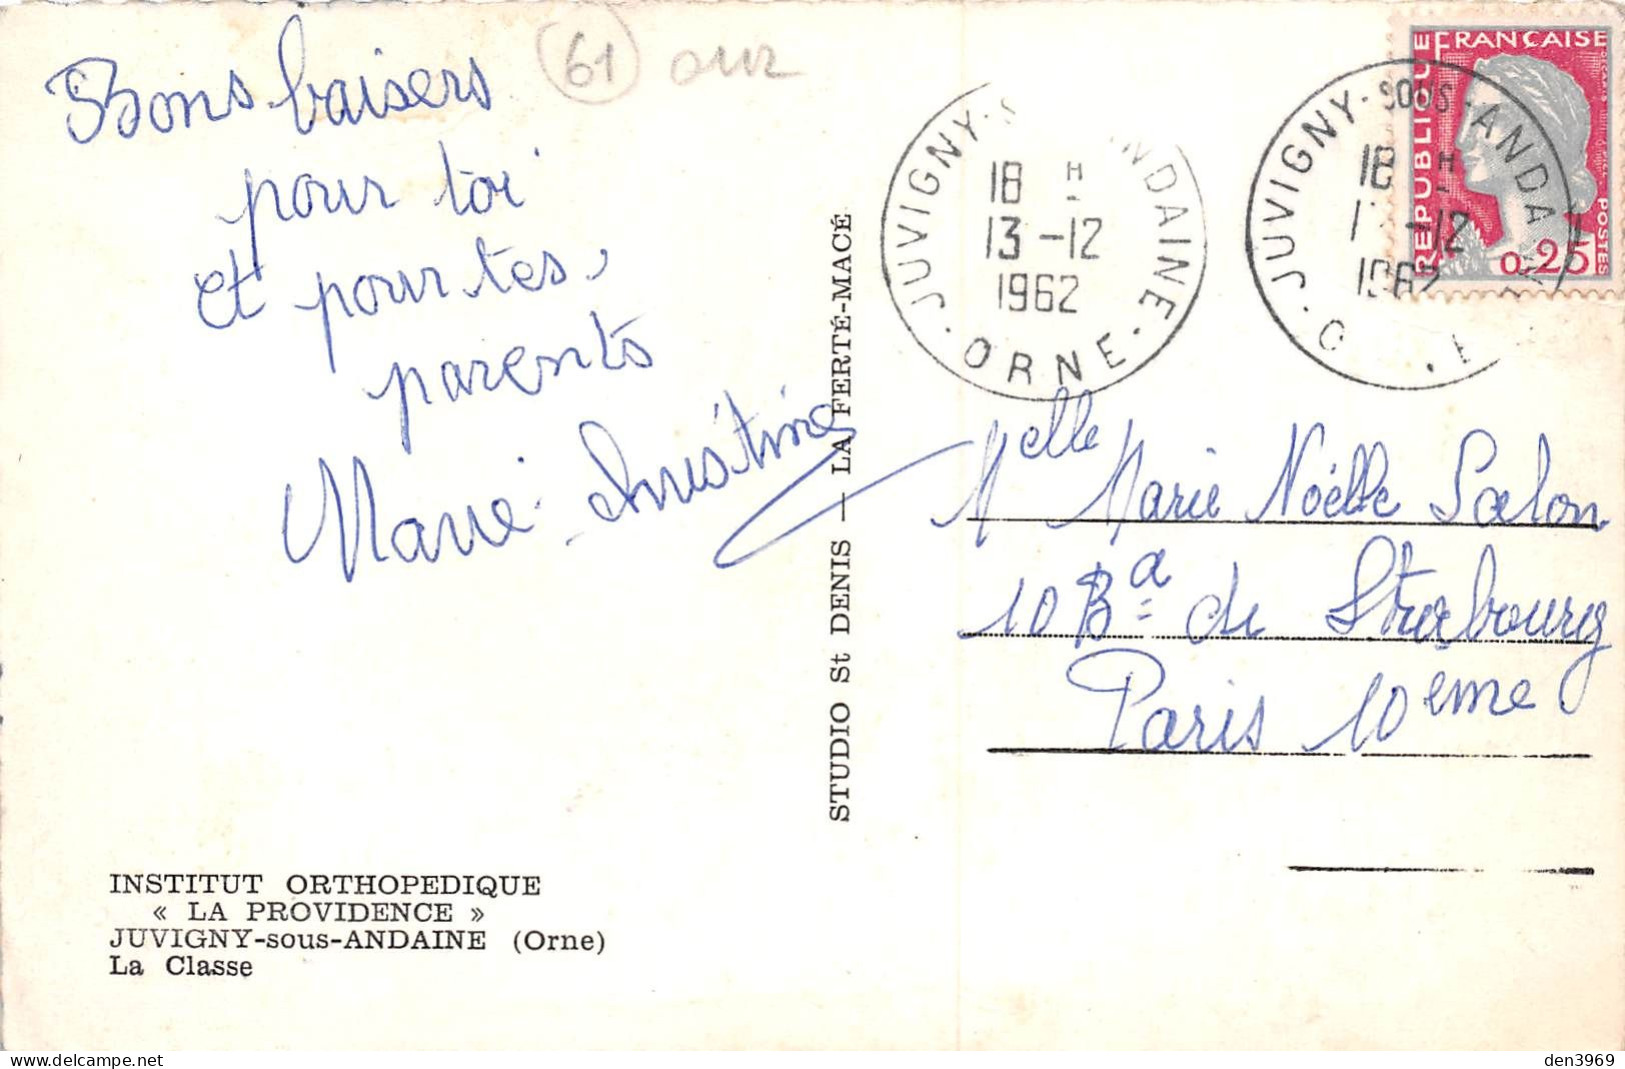 Bons baisers
pour toi
et pour tes
parents
Marie-Christine
61
INSTITUT ORTHOPEDIQUE
« LA PROVIDENCE »
JUVIGNY-sous-ANDAINE (Orne)
La Classe
STUDIO St DENIS — LA FERTÉ-MACÉ
JUVIGNY-S ANDAINE
18 H
13-12
1962
ORNE
JUVIGNY-SOUS-ANDA
18 H
1 -12
1962
O E
REPUBLIQUE FRANÇAISE
POSTES
0,25
Melle Marie Noëlle Salon
10 Bd de Strasbourg
Paris 10eme
den3969